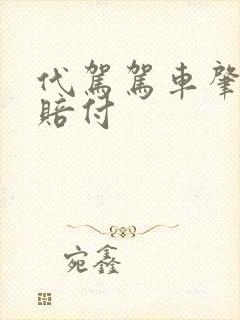 代駕駕車肇
賠付
宛鑫